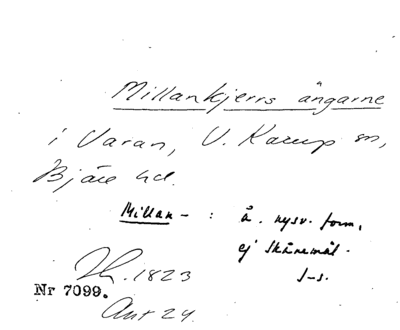 Millankjerrs ängarne
i Varan, V. Karup sn,
Bjäre hd.
Millan- : ä. nysv. form,
ej skånemål.
S-s.
1823
Nr 7099.
Ant 24.